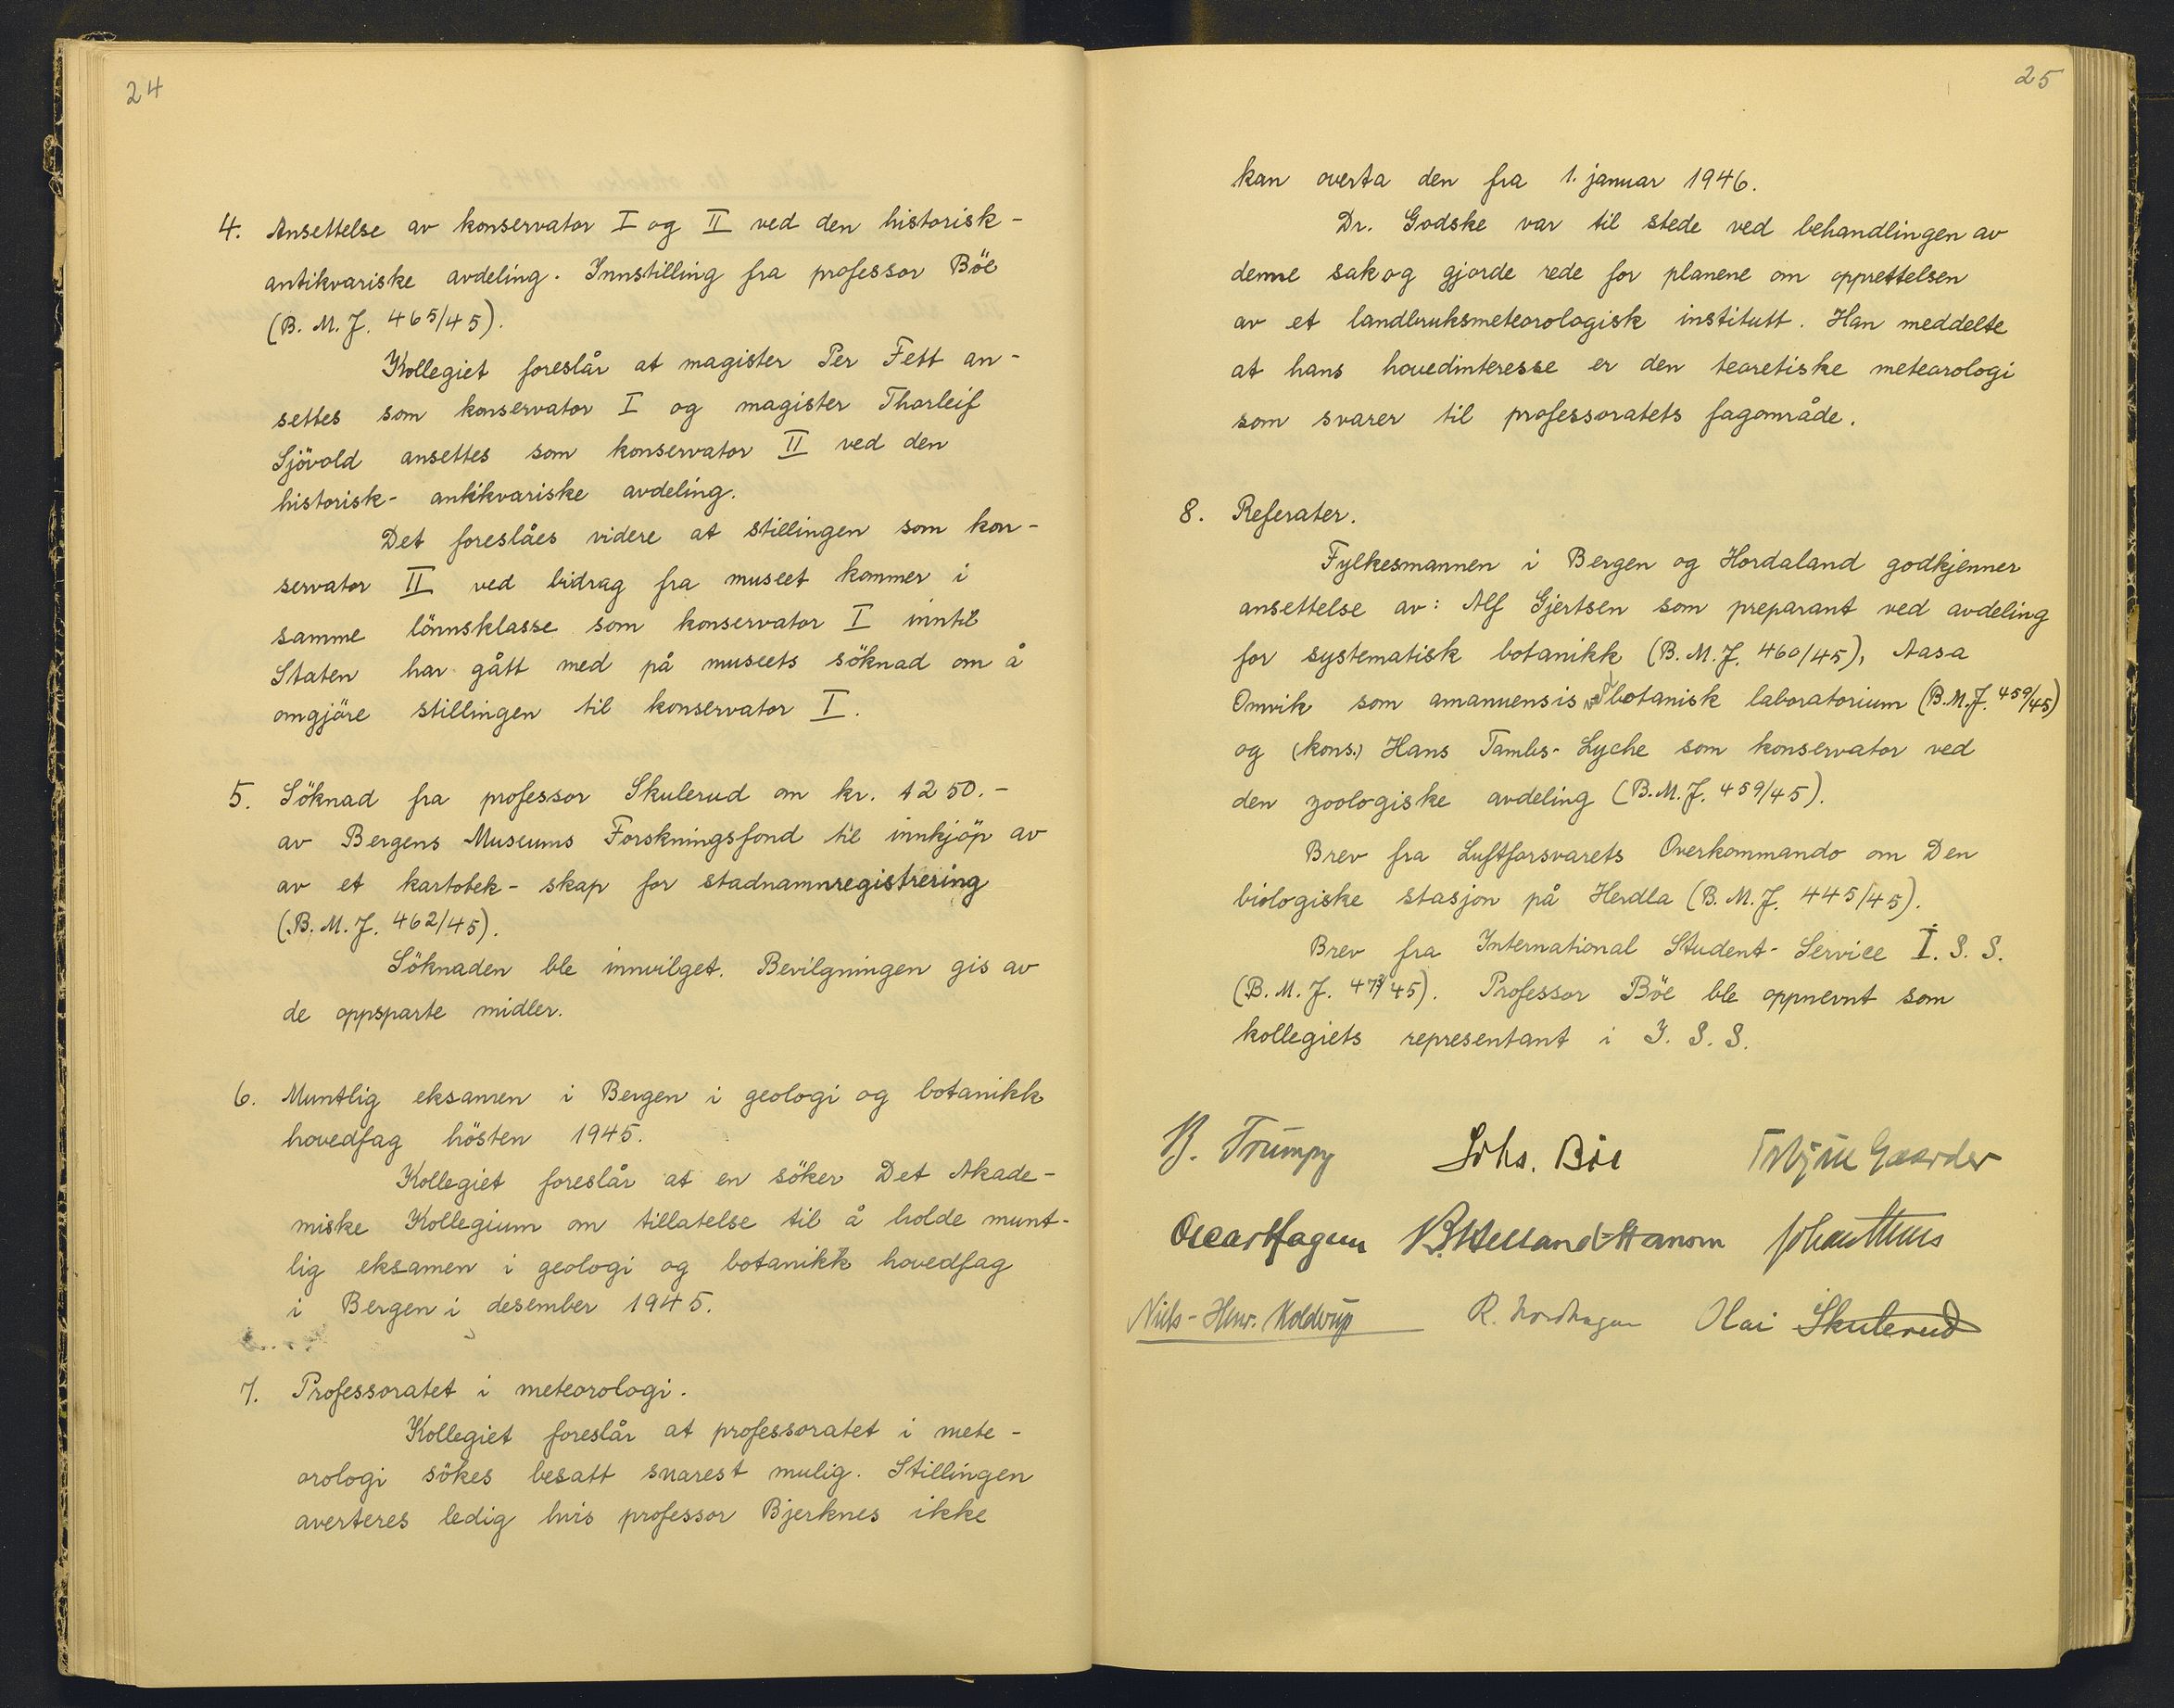 24
4. Ansettelse av konservator I og II ved den historisk-
antikvariske avdeling. Innstilling fra professor Böe
(B. M. J. 465/45).
Kollegiet foreslår at magister Per Fett an-
settes som konservator I og magister Thorleif
Sjövold ansettes som konservator II ved den
historisk- antikvariske avdeling.
Det foreslåes videre at stillingen som kon-
servator II ved bidrag fra museet kommer i
samme lönnsklasse som konservator I inntil
Staten har gått med på museets söknad om å
omgjöre stillingen til konservator I.
5. Söknad fra professor Skulerud om kr. 1250.-
av Bergens Museums Forskningsfond til innkjöp av
av et kartotek- skap for stadnamnregistrering
(B. M. J. 462/45).
Söknaden ble innvilget. Bevilgningen gis av
de oppsparte midler.
6. Muntlig eksamen i Bergen i geologi og botanikk
hovedfag hösten 1945.
Kollegiet foreslår at en söker Det Akade-
miske Kollegium om tillatelse til å holde munt-
lig eksamen i geologi og botanikk hovedfag
i Bergen i desember 1945.
7. Professoratet i meteorologi.
Kollegiet foreslår at professoratet i mete-
orologi sökes besatt snarest mulig. Stillingen
averteres ledig hvis professor Bjerknes ikke
25
kan overta den fra 1. januar 1946.
Dr. Godske var til stede ved behandlingen av
denne sak og gjorde rede for planene om opprettelsen
av et landbruksmeteorologisk institutt. Han meddelte
at hans hovedinteresse er den teoretiske meteorologi
som svarer til professoratets fagområde.
8. Referater.
Fylkesmannen i Bergen og Hordaland godkjenner
ansettelse av: Alf Gjertsen som preparant ved avdeling
for systematisk botanikk (B. M. J. 460/45), Aasa
Omvik som amanuensis ved botanisk laboratorium (B.M.J. 459/45)
og (kons.) Hans Tambs-Lyche som konservator ved
den zoologiske avdeling (B.M.J. 459/45).
Brev fra Luftforsvarets Overkommando om Den
biologiske stasjon på Herdla (B. M. J. 445/45).
Brev fra International Student-Service I. S. S.
(B. M. J. 473/45). Professor Böe ble oppnevnt som
kollegiets representant i I. S. S.
B. Trumpy Johs. Böe Torbjörn Gaarder
Oscar Hagem B. Helland-Hansen
Niels-Henr. Kolderup R. Nordhagen Olai Skulerud